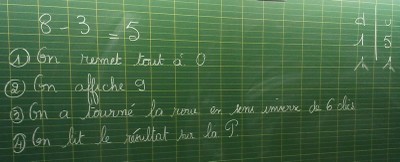 8 - 3 = 5
① On remet tout à 0
② On affiche 9
③ On a tourné la roue en sens inverse de 6 clics
④ On lit le résultat sur la P.
d u
1 5
1 1